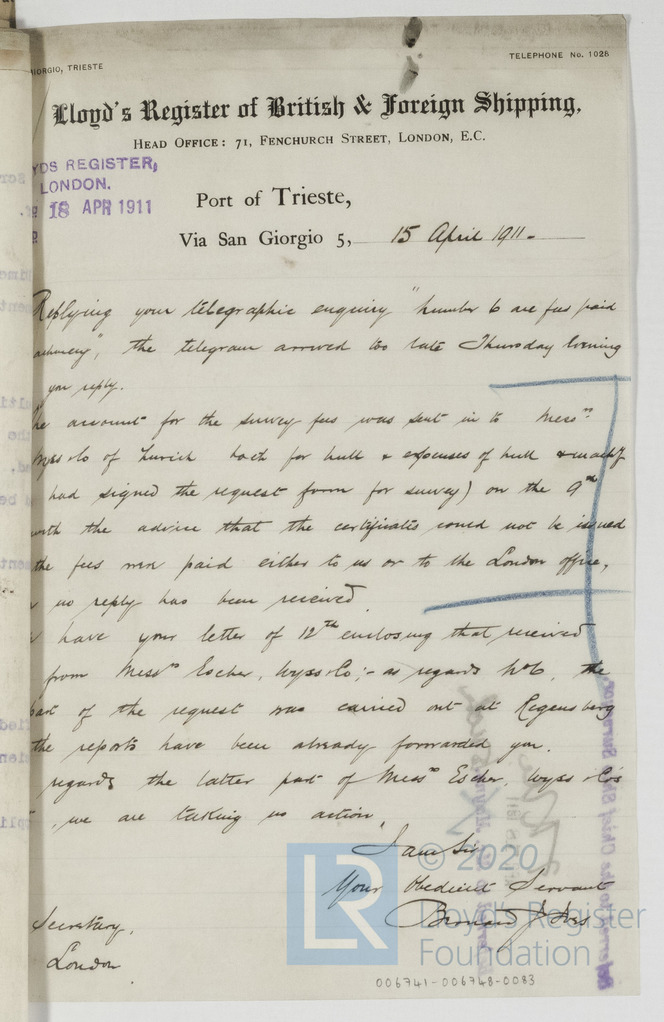 IORGIO, TRIESTE
TELEPHONE No. 1028
Lloyd's Register of British & Foreign Shipping,
HEAD OFFICE: 71, FENCHURCH STREET, LONDON, E.C.
YDS REGISTER,
LONDON.
18 APR 1911
Port of Trieste,
Via San Giorgio 5, 15 April 1911.
Replying your telegraphic enquiry "number 6 are fees paid
", the telegram arrived too late Thursday Evening
you reply.
he account for the survey fees was sent in to Messrs
Wyss & Co of Zurich both for hull & expenses of hull & machy
had signed the request form for survey) on the 9th
with the advice that the certificates could not be issued
the fees were paid either to us or to the London office,
no reply has been received.
have your letter of 12th enclosing that received
from Messrs Escher, Wyss & Co:- as regards No 6, the
part of the request was carried out at Regensburg
the reports have been already forwarded you.
regards the latter part of Messrs Escher, Wyss & Co's
, we are taking no action.
I am Sir
Your Obedient Servant
Secretary,
London
LR
© 2020
Lloyd's Register
Foundation
006741-006748-0083
Referred to the Chief Ship Surveyor.